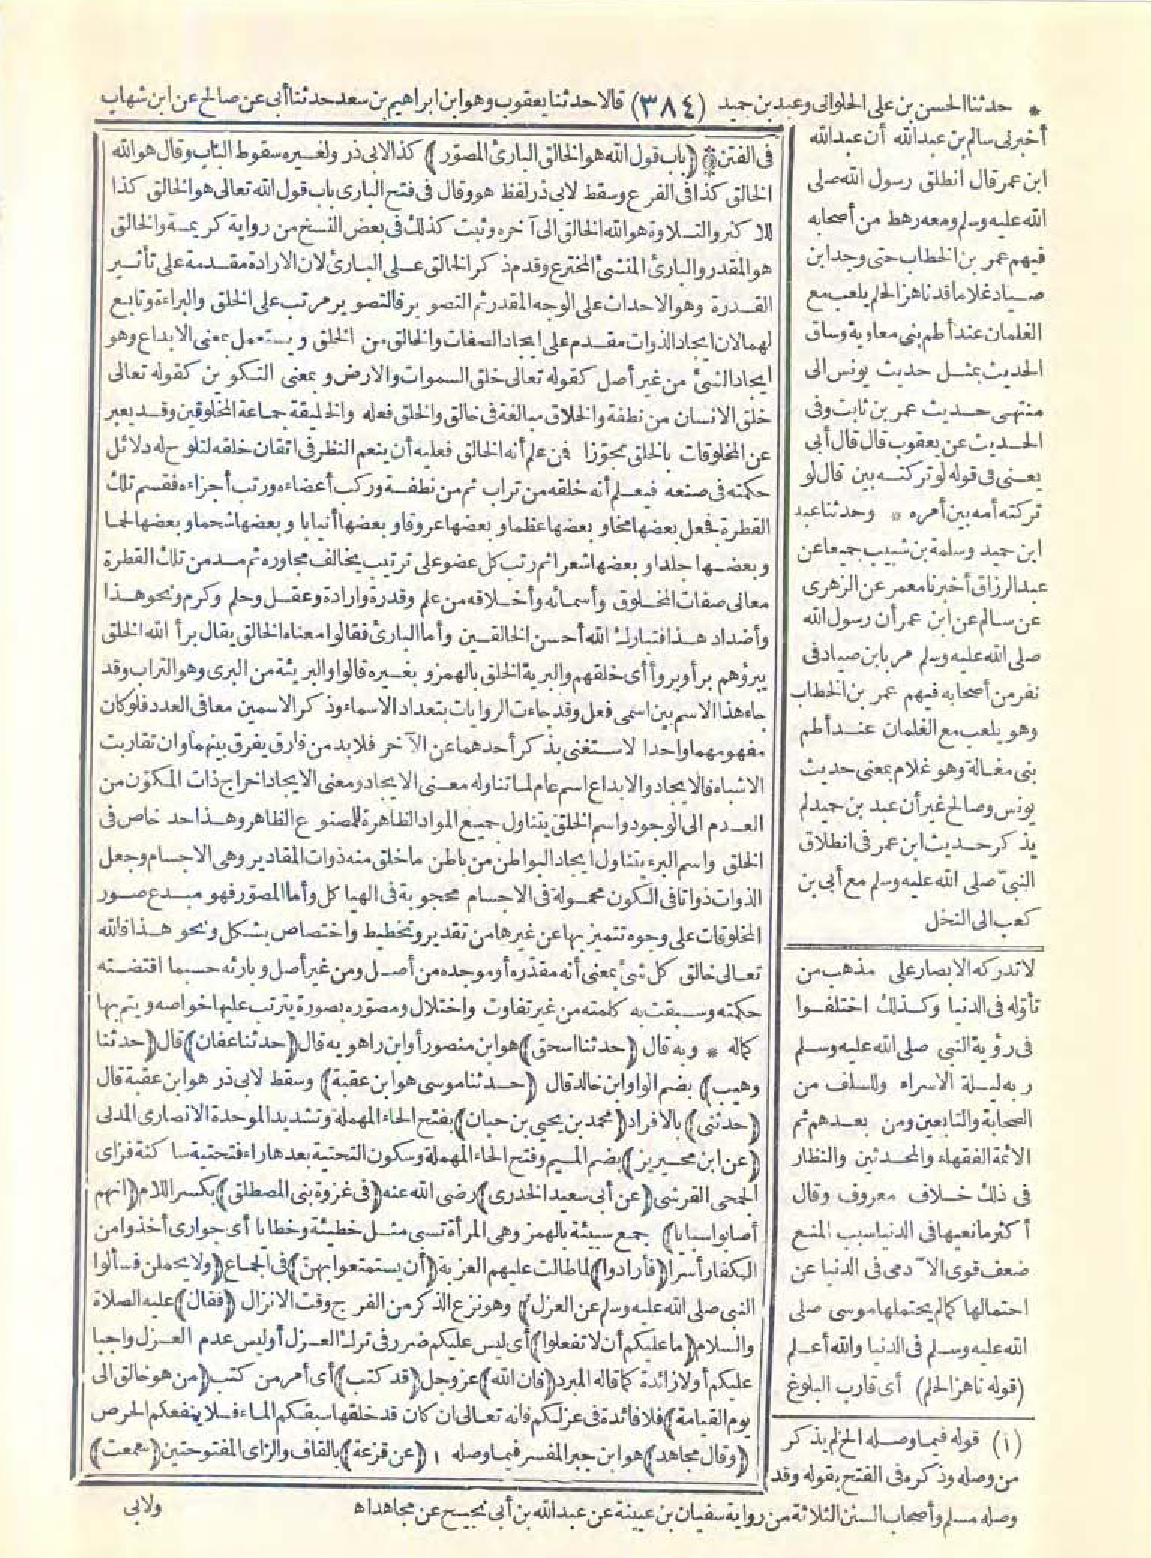 * حدثنا الحسن بن على الحلوانى وعبد بن حميد (٣٨٤) قالا حدثنا يعقوب وهو ابن ابراهيم بن سعد حدثنا أبى عن صالح عن ابن شهاب
أخبرنى سالم بن عبدالله أن عبدالله
ابن عمر قال انطلق رسول الله صلى
الله عليه وسلم ومعه رهط من أصحابه
فيهم عمر بن الخطاب حتى وجد ابن
صياد غلاما قد ناهز الحلم يلعب مع
الغلمان عند أطم بنى معاوية وساق
الحديث بمثل حديث يونس الى
منتهى حديث عمر بن ثابت وفى
الحديث عن يعقوب قال قال أبى
يعنى فى قوله لو تركته بين قال لو
تركته أمه بين أمره * وحدثنا عبد
ابن حميد وسلمة بن شبيب جميعا عن
عبد الرزاق أخبرنا معمر عن الزهرى
عن سالم عن ابن عمر أن رسول الله
صلى الله عليه وسلم مر بابن صياد فى
نفر من أصحابه فيهم عمر بن الخطاب
وهو يلعب مع الغلمان عند أطم
بنى مغالة وهو غلام بمعنى حديث
يونس وصالح غير أن عبد بن حميد لم
يذكر حديث ابن عمر فى انطلاق
النبى صلى الله عليه وسلم مع أبى بن
كعب الى النخل
لا تدركه الابصار على مذهب من
تأوله فى الدنيا وكذلك اختلفوا
فى رؤية النبى صلى الله عليه وسلم
ربه ليلة الاسراء وللسلف من
الصحابة والتابعين ومن بعدهم ثم
الائمة الفقهاء والمحدثين والنظار
فى ذلك خلاف معروف وقال
أكثر مانعيها فى الدنيا سبب المنع
ضعف قوى الآدمى فى الدنيا عن
احتمالها كما لم يحتملها موسى صلى
الله عليه وسلم فى الدنيا والله أعلم
(قوله ناهز الحلم) أى قارب البلوغ
(١) قوله فيما وصله الخ لم يذكر
من وصله وذكره فى الفتح بقوله وقد
وصله مسلم وأصحاب السنن الثلاثة من رواية سفيان بن عيينة عن عبدالله بن أبى نجيح عن مجاهد اه
فى الفتن (باب قول الله هو الخالق البارئ المصور) كذا لابى ذر ولغيره سقوط الباب وقال هو الله
الخالق كذا فى الفرع وسقط لابى ذر لفظ هو وقال فى فتح البارى باب قول الله تعالى هو الخالق كذا
للاكثر والتلاوة هو الله الخالق الى آخره وثبت كذلك فى بعض النسخ من رواية كريمة والخالق
هو المقدر والبارئ المنشئ المخترع وقدم ذكر الخالق على البارئ لان الارادة مقدمة على تأثير
القدرة وهو الاحداث على الوجه المقدر ثم التصوير فالتصوير مرتب على الخلق والبراءة وتابع
لهما لان ايجاد الذوات مقدم على ايجاد الصفات والخالق من الخلق ويستعمل بمعنى الابداع وهو
ايجاد الشئ من غير أصل كقوله تعالى خلق السموات والارض وبمعنى التكوين كقوله تعالى
خلق الانسان من نطفة والخلاق مبالغة فى خالق والخلق فعله والخليقة جماعة المخلوقين وقد يعبر
عن المخلوقات بالخلق تجوزا فمن علم أنه الخالق فعليه أن ينعم النظر فى اتقان خلقه لتلوح له دلائل
حكمته فى صنعه فيعلم أنه خلقه من تراب ثم من نطفة وركب أعضاءه ورتب أجزاءه فقسم تلك
القطرة فجعل بعضها مخا وبعضها عظما وبعضها عروقا وبعضها أنيابا وبعضها شحما وبعضها لحما
وبعضها جلدا وبعضها شعرا ثم رتب كل عضو على ترتيب يخالف مجاوره ثم مد من تلك القطرة
معانى صفات المخلوق وأسمائه وأخلاقه من علم وقدرة وارادة وعقل وحلم وكرم ونحو هذا
وأضداد هذا فتبارك الله أحسن الخالقين وأما البارئ فقالوا معناه الخالق يقال برأ الله الخلق
يبرؤهم برأ وبروأ أى خلقهم والبرية الخلق بالهمز وبغيره قالوا والبريئة من البرى وهو التراب وقد
جاء هذا الاسم بين اسمى فعل وقد جاءت الروايات بتعداد الاسماء وذكر الاسمين معا فى العدد فلو كان
مفهومهما واحدا لاستغنى بذكر أحدهما عن الآخر فلا بد من فارق يفرق بينهما وان تقاربت
الاشباه فالايجاد والابداع اسم عام لما تناوله معنى الايجاد ومعنى الايجاد اخراج ذات المكون من
العدم الى الوجود واسم الخلق يتناول جميع المواد الظاهرة للمصنوع الظاهر وهذا حد خاص فى
الخلق واسم البرء يتناول ايجاد البواطن من باطن ما خلق منه ذوات المقادير وهى الاجسام وجعل
الذوات ذواتا فى الكون محمولة فى الاجسام محجوبة فى الهياكل وأما المصور فهو مبدع صور
المخلوقات على وجوه تتميز بها عن غيرها من تقدير وتخطيط واختصاص بشكل ونحو هذا فالله
تعالى خالق كل شئ بمعنى أنه مقدره أو موجده من أصل ومن غير أصل وبارئه حسبما اقتضته
حكمته وسبقت به كلمته من غير تفاوت واختلال ومصوره بصورة يترتب عليها خواصه ويتم بها
كماله * وبه قال (حدثنا اسحق) هو ابن منصور أو ابن راهويه قال (حدثنا عفان) قال (حدثنا
وهيب) بضم الواو ابن خالد قال (حدثنا موسى هو ابن عقبة) وسقط لابى ذر هو ابن عقبة قال
(حدثنى) بالافراد (محمد بن يحيى بن حبان) بفتح الحاء المهملة وتشديد الموحدة الانصارى المدنى
(عن ابن محيريز) بضم الميم وفتح الحاء المهملة وسكون التحتية بعدها راء فتحتية ساكنة فزاى
الجمحى القرشى (عن أبى سعيد الخدرى) رضى الله عنه (فى غزوة بنى المصطلق) بكسر اللام (انهم
أصابوا سبايا) جمع سبيئة بالهمز وهى المرأة تسبى مثل خطيئة وخطايا أى جوارى أخذوا من
الكفار أسرا (فأرادوا) لما طالت عليهم العزبة (أن يستمتعوا بهن) فى الجماع (ولا يحملن فسألوا
النبى صلى الله عليه وسلم عن العزل) وهو نزع الذكر من الفرج وقت الانزال (فقال) عليه الصلاة
والسلام (ما عليكم أن لا تفعلوا) أى ليس عليكم ضرر فى ترك العزل أو ليس عدم العزل واجبا
عليكم أو لا زائدة كما قاله المبرد (فان الله) عز وجل (قد كتب) أى أمر من كتب (من هو خالق الى
يوم القيامة) فلا فائدة فى عزلكم فانه تعالى ان كان قد خلقها سبقكم الماء فلا ينفعكم الحرص
(وقال مجاهد) هو ابن جبر المفسر فيما وصله ١ (عن قزعة) بالقاف والزاى المفتوحتين (سمعت)
ولابى